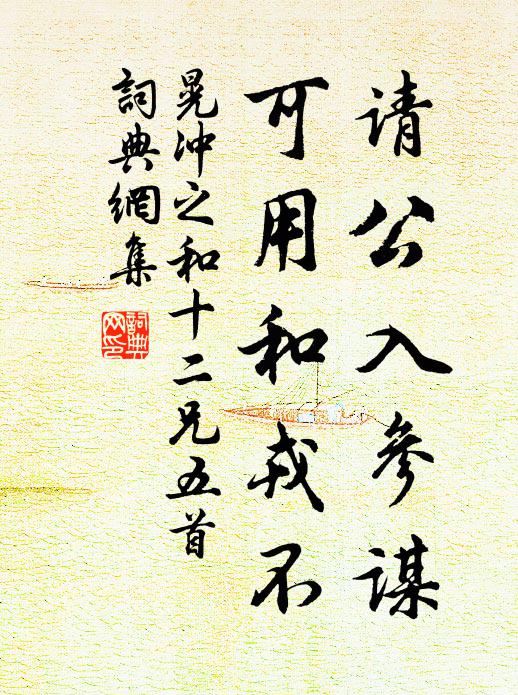 请公入参谋
可用和戎不
晃冲之和十二兄五首
詞典網集
詞典
网印